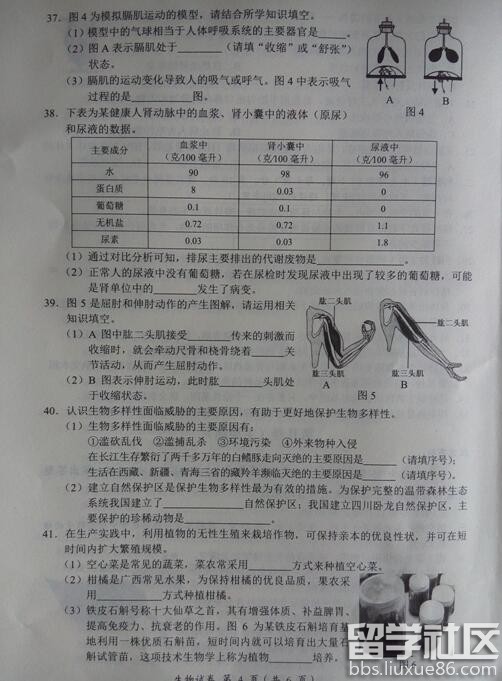 37. 图4为模拟膈肌运动的模型，请结合所学知识填空。
（1）模型中的气球相当于人体呼吸系统的主要器官是______。
（2）图A表示膈肌处于______（请填“收缩”或“舒张”）
状态。
（3）膈肌的运动变化导致人的吸气或呼气。图4中表示吸气
过程的是______图。
A B
图4
38. 下表为某健康人肾动脉中的血浆、肾小囊中的液体（原尿）
和尿液的数据。
主要成分 血浆中（克/100毫升） 肾小囊中（克/100毫升） 尿液中（克/100毫升）
水 90 98 96
蛋白质 8 0.03 0
葡萄糖 0.1 0.1 0
无机盐 0.72 0.72 1.1
尿素 0.03 0.03 1.8
（1）通过对比分析可知，排尿主要排出的代谢废物是______。
（2）正常人的尿液中没有葡萄糖，若在尿检时发现尿液中出现了较多的葡萄糖，可能
是肾单位中的______发生了病变。
39. 图5是屈肘和伸肘动作的产生图解，请运用相关
知识填空。
（1）A图中肱二头肌接受______传来的刺激而
收缩时，就会牵动尺骨和桡骨绕着______关
节活动，从而产生屈肘动作。
（2）B图表示伸肘运动，此时肱______头肌处
于收缩状态。
肱二头肌
肱三头肌
A
肱二头肌
肱三头肌
B
图5
40. 认识生物多样性面临威胁的主要原因，有助于更好地保护生物多样性。
（1）生物多样性面临威胁的主要原因有：
①滥砍乱伐 ②滥捕乱杀 ③环境污染 ④外来物种入侵
在长江生存繁衍了两千多万年的白鳍豚走向灭绝的主要原因是______（请填序号）；
生活在西藏、新疆、青海三省的藏羚羊濒临灭绝的主要原因是______（请填序号）。
（2）建立自然保护区是保护生物多样性最为有效的措施。为保护完整的温带森林生态
系统我国建立了______自然保护区；我国建立四川卧龙自然保护区，主
要保护的珍稀动物是______。
41. 在生产实践中，利用植物的无性生殖来栽培作物，可保持亲本的优良性状，并可在短
时间内扩大繁殖规模。
（1）空心菜是常见的蔬菜，菜农常采用______方式来种植空心菜。
（2）柑橘是广西常见水果，为保持柑橘的优良品质，果农采
用______方式种植柑橘。
（3）铁皮石斛号称十大仙草之首，其有增强体质、补益脾胃、
提高免疫力、抗衰老的作用。图6为某铁皮石斛培育基
地利用一株优质石斛苗，短时间内就可以培育出大量石
斛试管苗，这项技术生物学上称为植物______培养。
图6
生物试卷 第4页（共6页）
留学社区
bbs.liuxue86.com